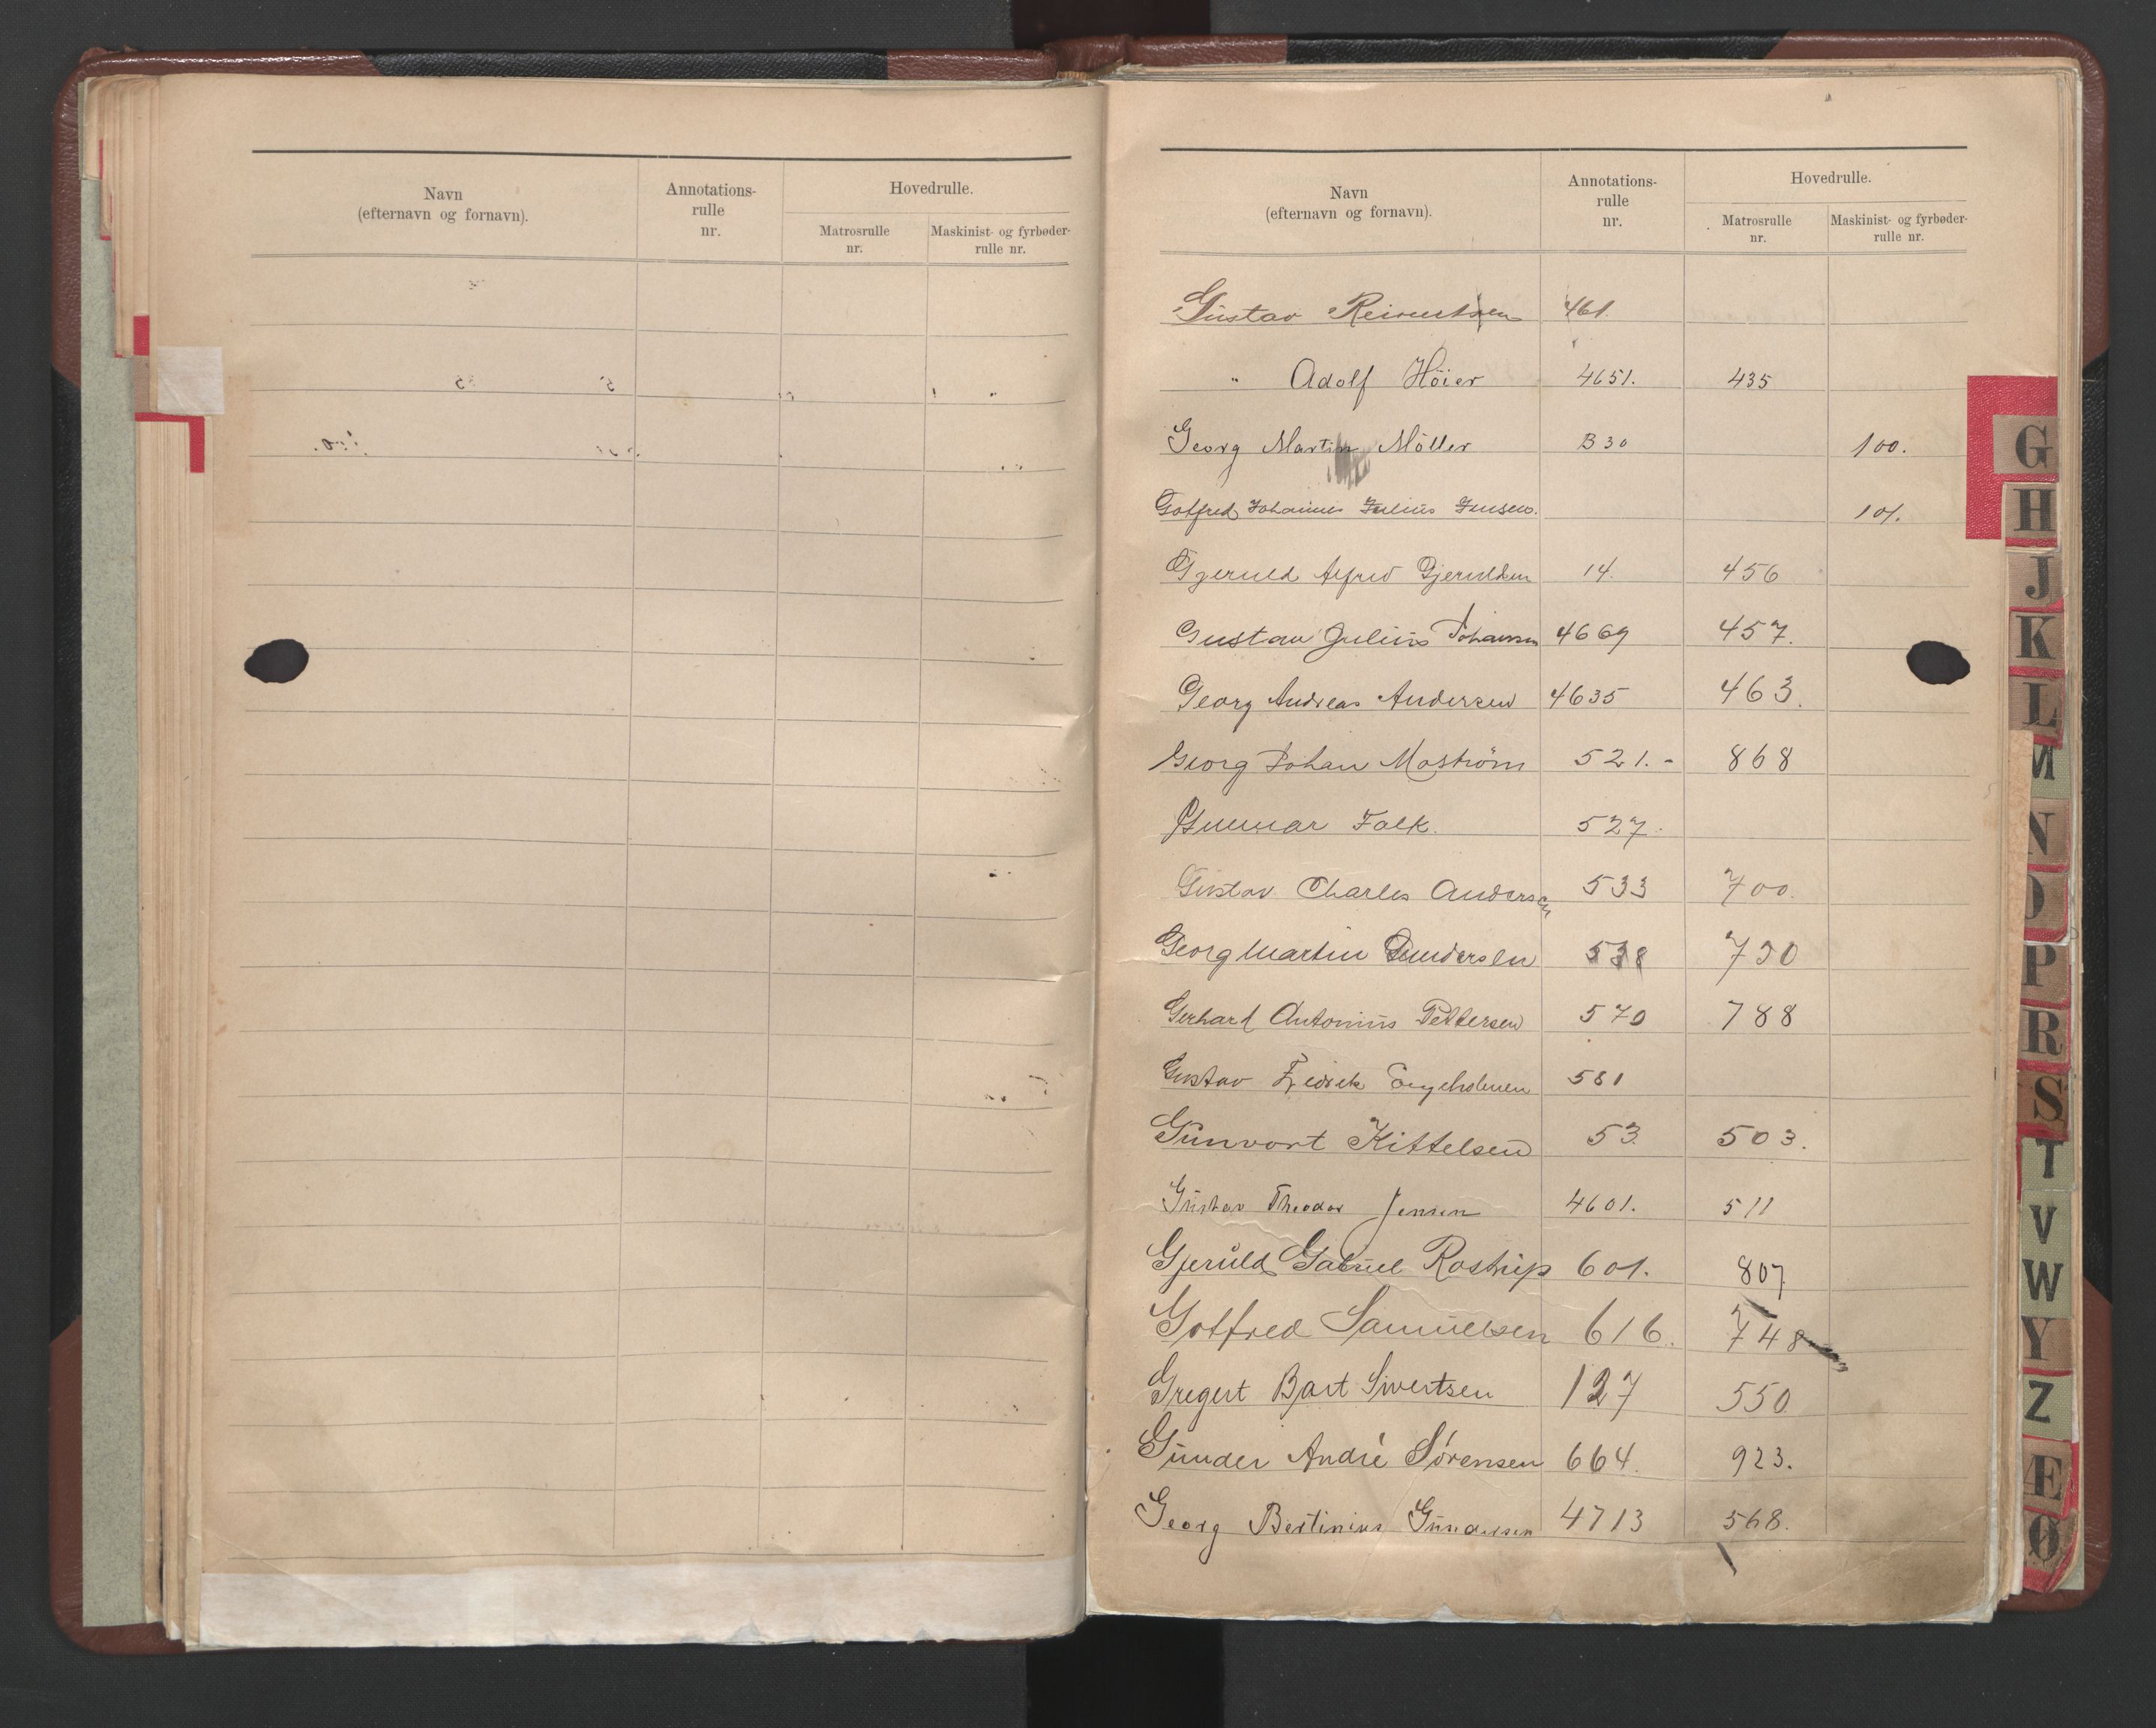 Navn
(efternavn og fornavn).
Annotations-
rulle
nr.
Hovedrulle.
Matrosrulle
nr.
Maskinist- og fyrbøder-
rulle nr.
Navn
(efternavn og fornavn).
Annotations-
rulle
nr.
Hovedrulle.
Matrosrulle
nr.
Maskinist- og fyrbøder-
rulle nr.
Gustav 461.
" Adolf Höier 4651. 435
Georg Martin Möller B 30 100.
Gotfred Johannes Julius Jensen. 101.
Gjeruld Alfred Gjeruldsen 14. 456
Gustav Julius Johansen 4669 457.
Georg Andreas Andersen 4635 463.
Georg Johan Moström 521.- 868
Gunnar Falk. 527.
Gustav Charles Andersen 533 700.
Georg Martin Gundersen 538 730
Gerhard Antonius Pettersen 570 788
Gustav Fredrik 581
Gunvort Kittelsen 53. 503.
Gustav Theodor Jensen 4601. 511
Gjeruld Gabriel Rostrup 601. 807
Gotfred Samuelsen 616. 748
Gregert Bart Sivertsen 127 550
Gunder André Sørensen 664. 923.
Georg Bertinius Gundersen 4713 568.
G
H
J
K
L
M
N
O
P
R
S
T
V
W
Y
Z
Æ
Ø